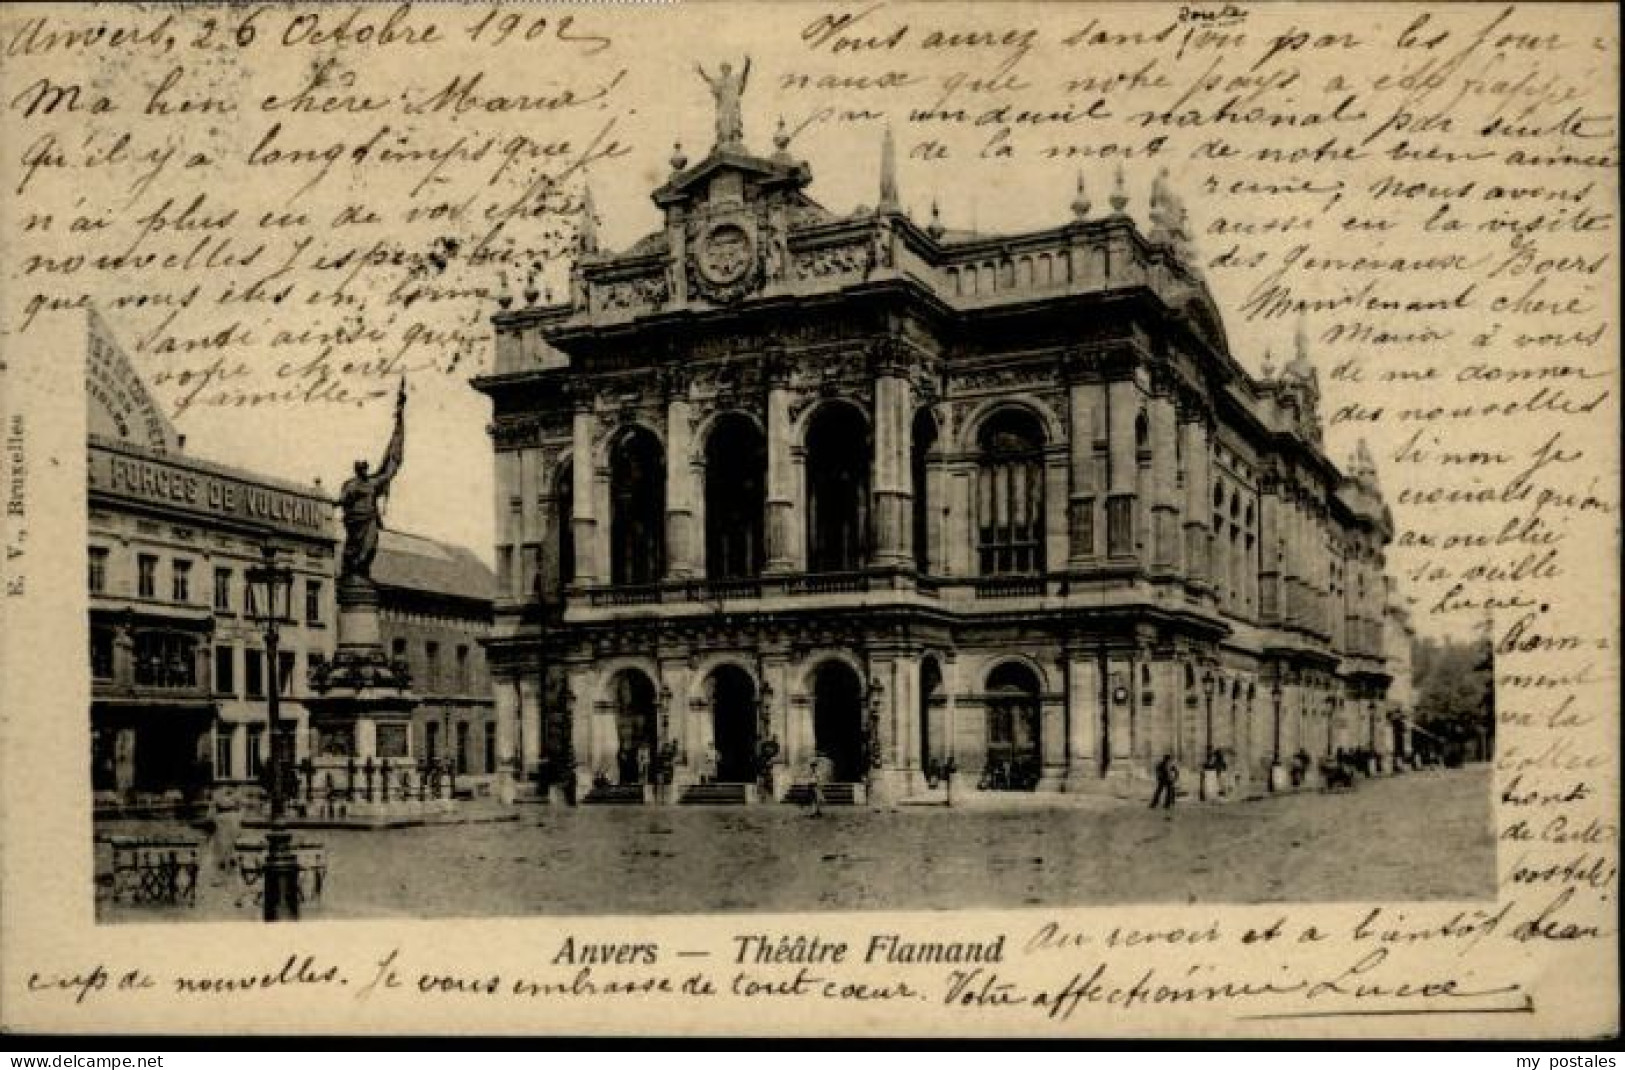 Anvers, 26 Octobre 1902
Ma bien chère Maria!
Qu'il y a longtemps que je
n'ai plus eu de vos chères
nouvelles J'espère bien
que vous êtes en bonne
santé ainsi que
votre chère
famille.
Vous aurez sans doute vu par les jour-
naux que notre pays a été frappé
par un deuil national par suite
de la mort de notre bien aimée
reine, nous avons
aussi eu la visite
des Généraux Boers
Maintenant chère
Maria à vous
de me donner
des nouvelles
si non je
croirais qu'on
a oublié
sa veille
Lucie.
Com-
ment
va la
collec
tions
de Carte
postale!
FORGES DE VULCAIN
E. V., Bruxelles
Anvers — Théâtre Flamand
Au revoir et a bientôt beau
coup de nouvelles. Je vous embrasse de tout cœur. Votre affectionnée Lucie
my postales